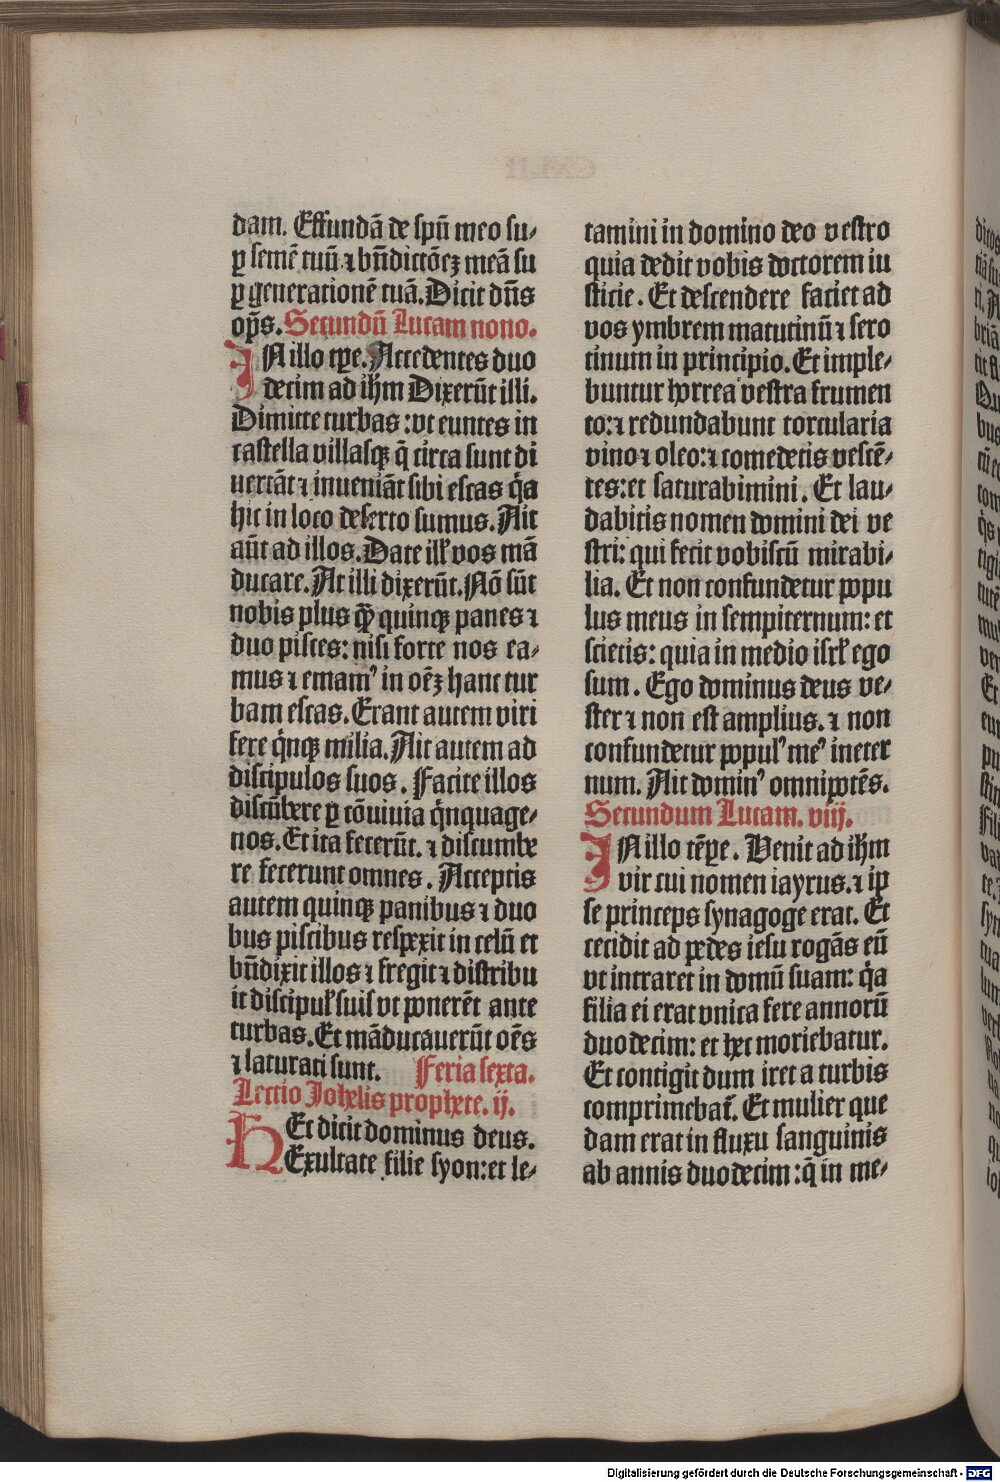 dam. Effundā de spū meo su⸗
ꝑ semē tuū ⁊ bn̄dictōeꝫ meā su
ꝑ generationē tuā. Dicit dn̄s
op̄s. Secundū Lucam nono.
IN illo tꝑe. Accedentes duo
decim ad ihm̄ Dixerūt illi.
Dimitte turbas : vt euntes in
castella villasqꝫ q̄ circa sunt di
uertāt ⁊ inueniāt sibi escas q̄a
hic in loco deserto sumus. Ait
aūt ad illos. Date ill' vos mā
ducare. At illi dixerūt. Nō sūt
nobis plus qꝫ̄ quinqꝫ panes ⁊
duo pisces: nisi forte nos ea⸗
mus ⁊ emamꝰ in oēꝫ hanc tur
bam escas. Erant autem viri
fere q̄nqꝫ milia. Ait autem ad
discipulos suos. Facite illos
discūbere ꝑ cōuiuia q̄nquage⸗
nos. Et ita fecerūt. ⁊ discumbe
re fecerunt omnes. Acceptis
autem quinqꝫ panibus ⁊ duo
bus piscibus respexit in celū et
bn̄dixit illos ⁊ fregit ⁊ distribu
it discipul' suis vt ponerēt ante
turbas. Et māducauerūt oēs
⁊ saturati sunt. Feria sexta.
Lectio Johelis prophete. ij.
HEt dicit dominus deus.
Exultate filie syon: et le⸗
tamini in domino deo vestro
quia dedit vobis doctorem iu
sticie. Et descendere faciet ad
vos ymbrem matutinū ⁊ sero
tinum in principio. Et imple⸗
buntur horrea vestra frumen
to: ⁊ redundabunt torcularia
vino ⁊ oleo: ⁊ comedetis vescē⸗
tes: et saturabimini. Et lau⸗
dabitis nomen domini dei ve
stri: qui fecit vobiscū mirabi⸗
lia. Et non confundetur popu
lus meus in sempiternum: et
scietis: quia in medio isrl' ego
sum. Ego dominus deus ve⸗
ster ⁊ non est amplius. ⁊ non
confundetur populꝰ meꝰ in eter
num. Ait dominꝰ omnipotēs.
Secundum Lucam. viij.
IN illo tēꝑe. Venit ad ihm̄
vir cui nomen iayrus. ⁊ ip
se princeps synagoge erat. Et
cecidit ad pedes iesu rogās eū
vt intraret in domū suam: q̄a
filia ei erat vnica fere annorū
duodecim: et hec moriebatur.
Et contigit dum iret a turbis
comprimebat̄. Et mulier que
dam erat in fluxu sanguinis
ab annis duodecim : q̄ in me⸗
Digitalisierung gefördert durch die Deutsche Forschungsgemeinschaft - DFG